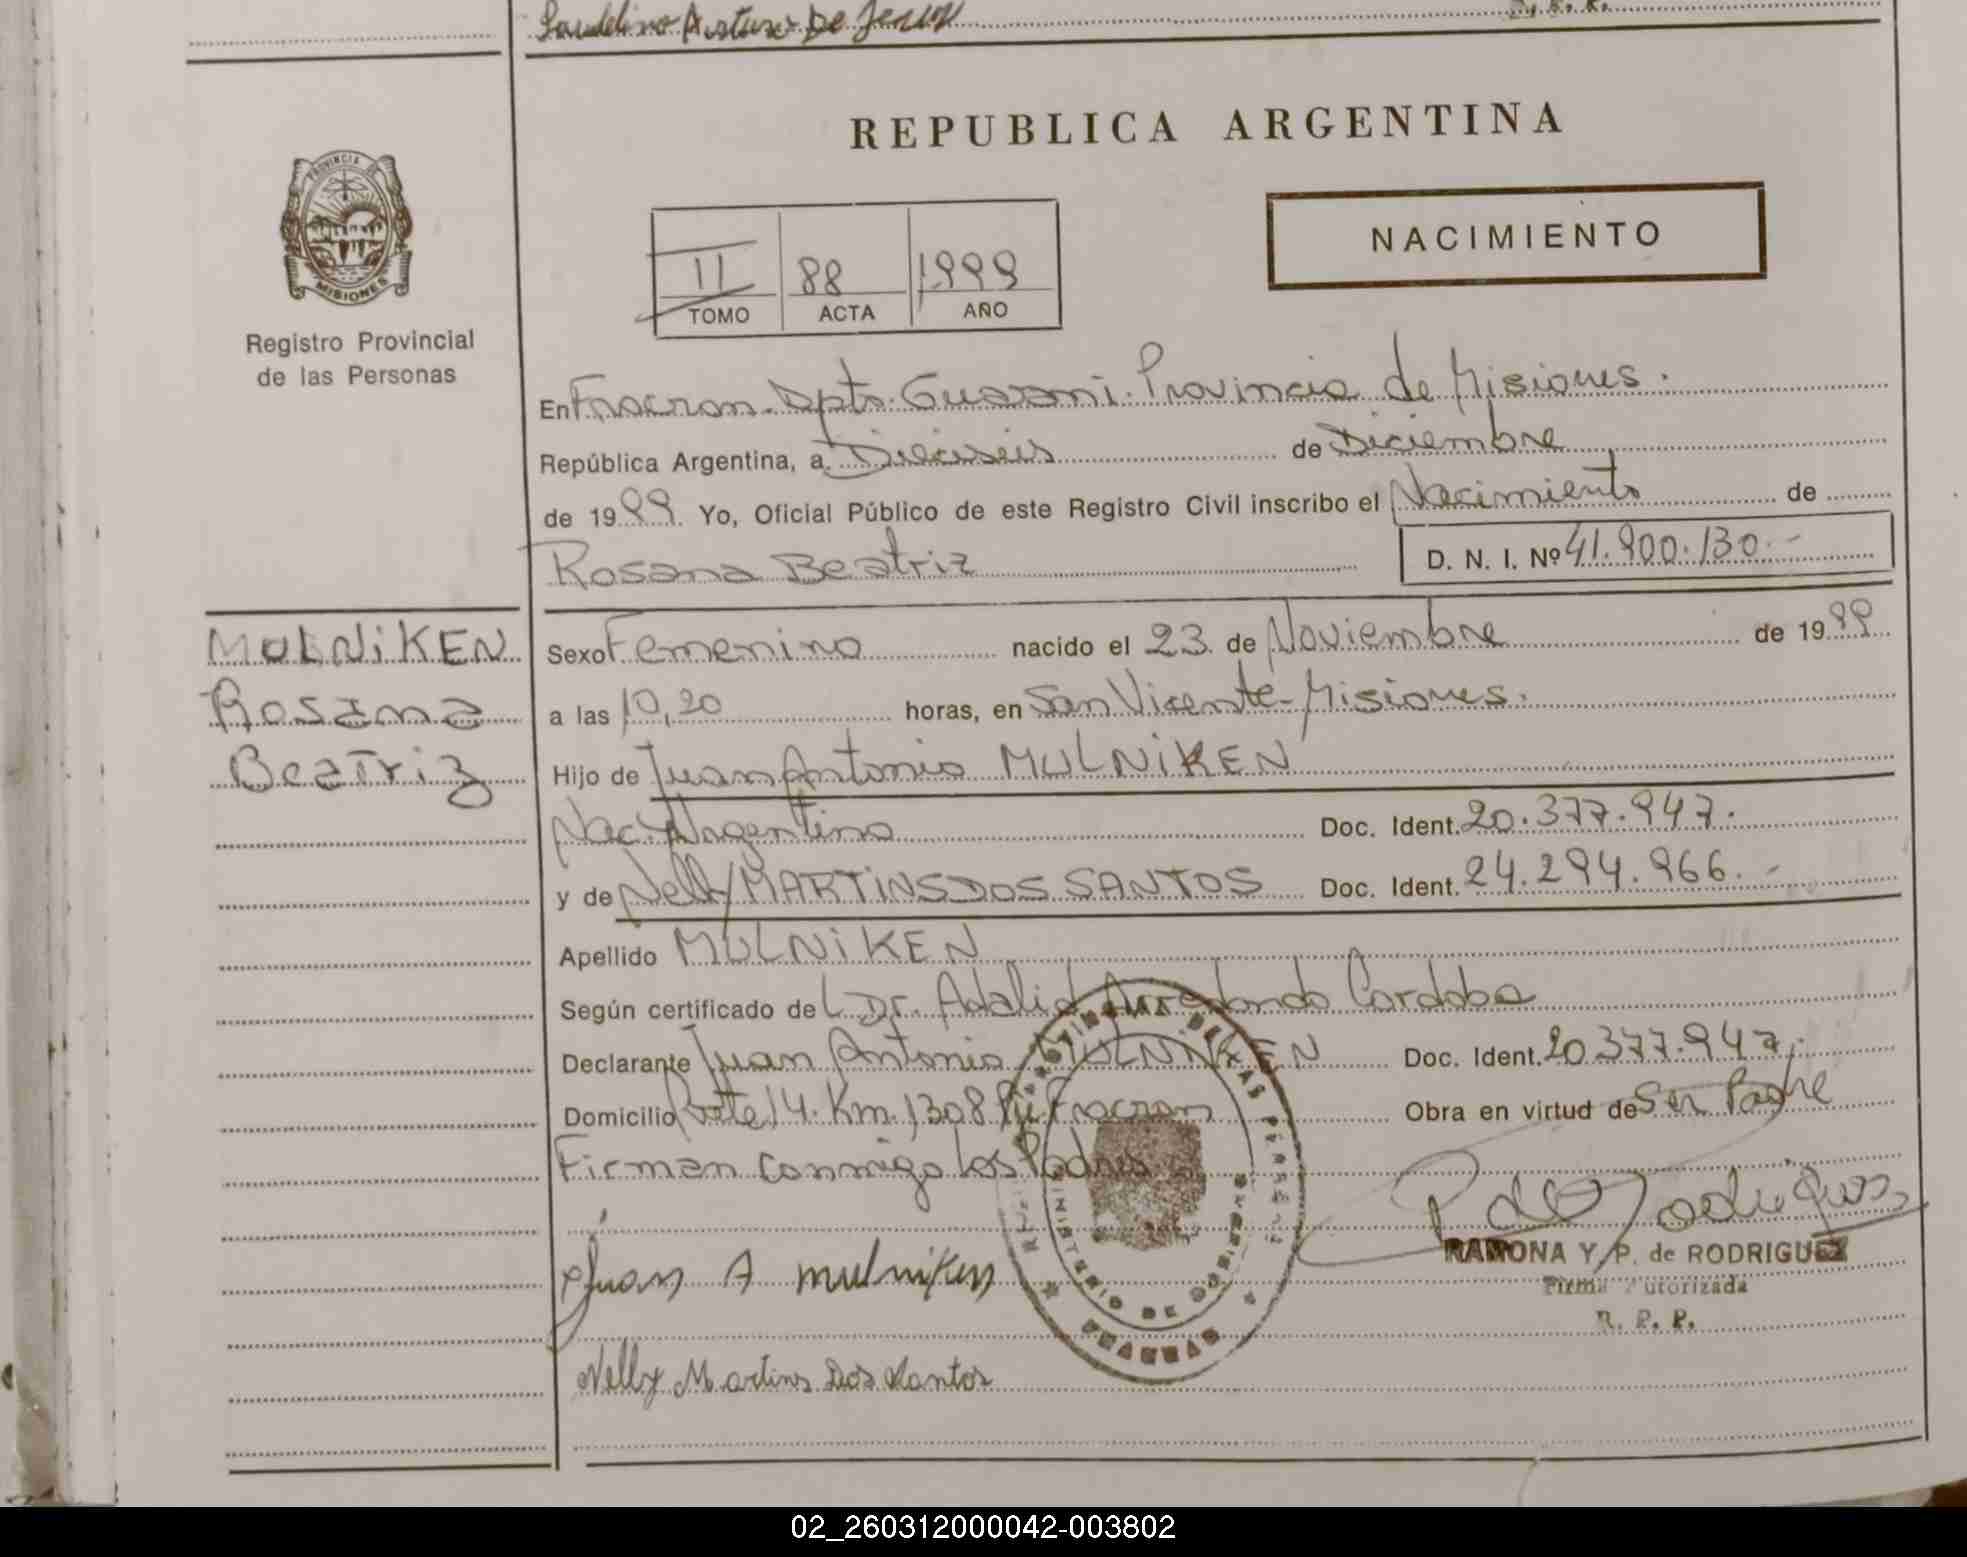 Laudelino Arturo De Jesus
R. P. P.
REPUBLICA ARGENTINA
PROVINCIA DE
MISIONES
Registro Provincial
de las Personas
NACIMIENTO
II 88 1999
TOMO ACTA AÑO
En Fracran. Dpto. Guarani. Provincia de Misiones.
República Argentina, a Dieciseis de Diciembre
de 1999. Yo, Oficial Público de este Registro Civil inscribo el Nacimiento de
Rosana Beatriz D. N. I. Nº 41.900.130.-
MULNiKEN
Rosana
Beatriz
Sexo Femenino nacido el 23 de Noviembre de 1999
a las 10,20 horas, en San Vicente-Misiones.
Hijo de Juan Antonio MULNiKEN
Nac. Argentina Doc. Ident. 20.377.947.
y de Nelly MARTiNS DOS SANTOS Doc. Ident. 24.294.966.-
Apellido MULNiKEN
Según certificado de Dr. Adalid Arredondo Cordoba
Declarante Juan Antonio MULNiKEN Doc. Ident. 20377.947.
Domicilio Ruta 14. Km. 1308 Fracran Obra en virtud de Ser Padre
Firman Conmigo los Padres
Juan A mulniken
Nelly Martins Dos Santos
P de Rodriguez
RAMONA Y. P. de RODRIGUEZ
Firma Autorizada
R. P. P.
DE LAS PERSONAS
MINISTERIO DE GOBIERNO
FRACRAN
02_260312000042-003802